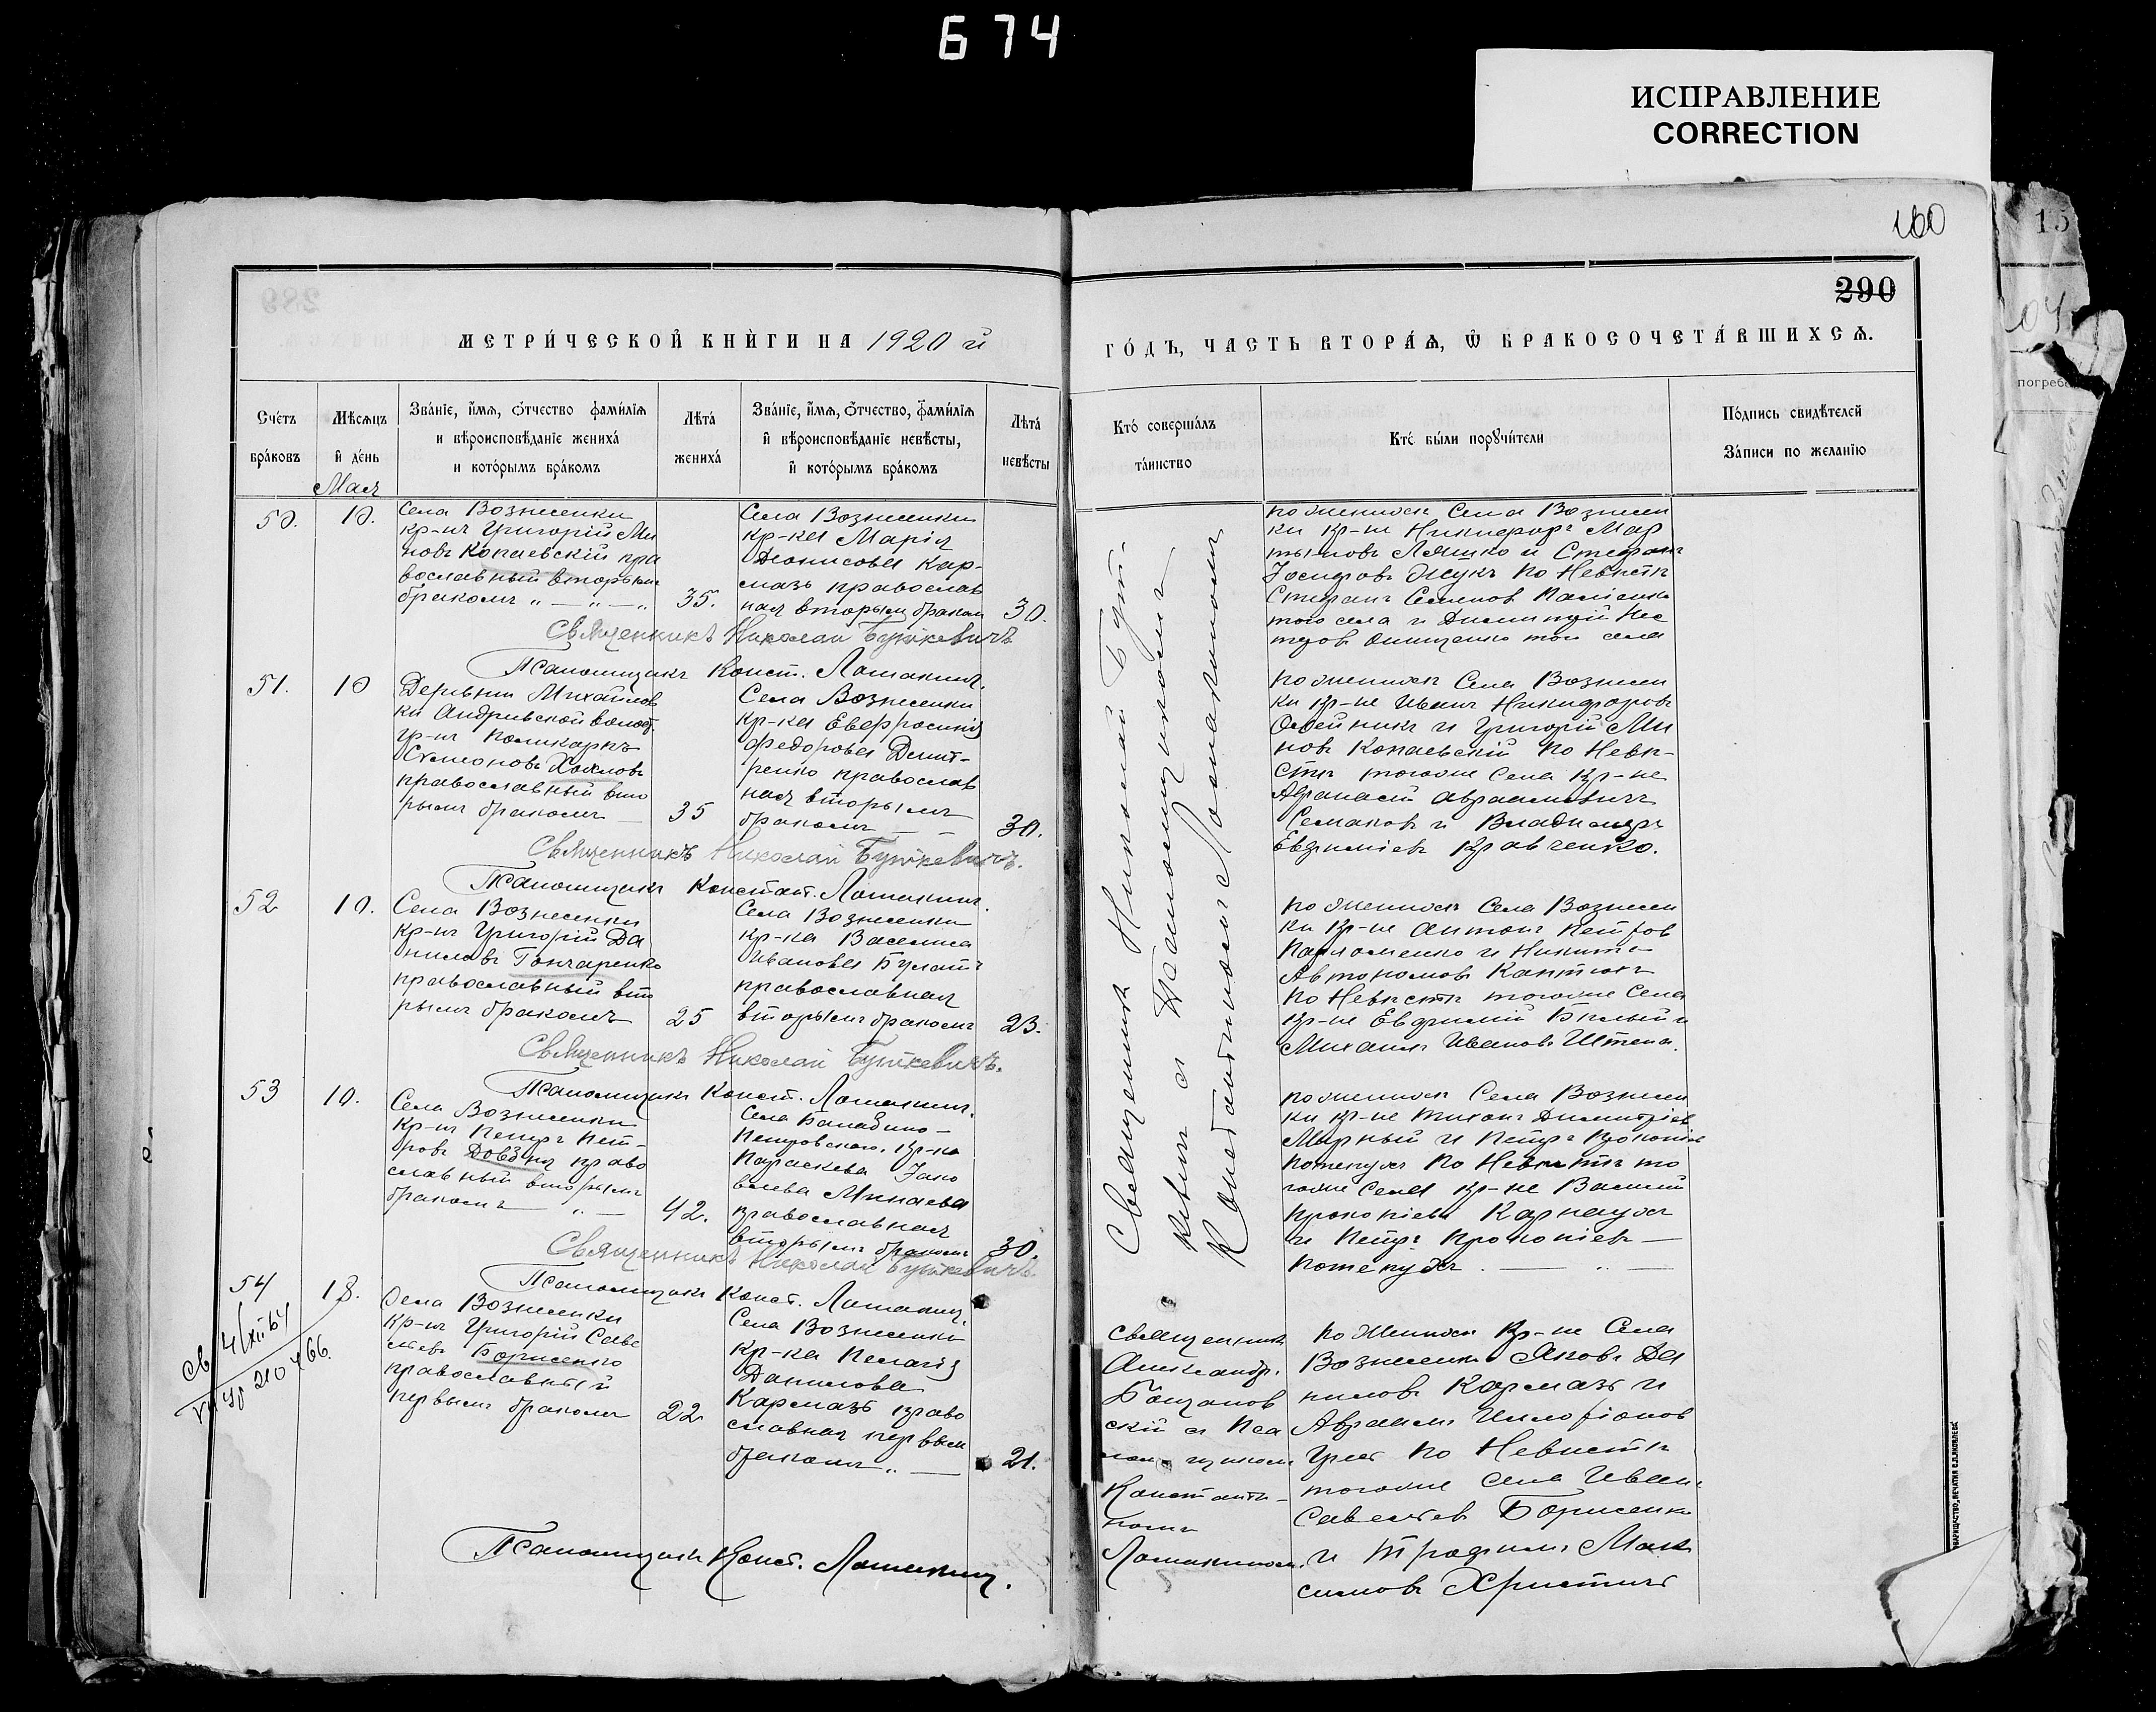 674
ИСПРАВЛЕНИЕ
CORRECTION
160
15
290
МЕТРИ́ЧЕСКОЙ КНИ́ГИ НА 1920 й
ГО́ДЪ, ЧАСТЬ ВТОРА́Ѧ, Ѿ БРАКОСОЧЕТА́ВШИХСѦ.
Сче́тъ бра́ковъ
Мѣсяцъ и́ де́нь
Зва́нїе, и́мѧ, ѻ́тчество фами́лїѧ
и вѣроисповѣ́данїе жениха́
и кото́рымъ бра́комъ
Лѣта́ жениха́
Зва́нїе, и́мѧ, ѻ́тчество, фами́лїѧ
и́ вѣроисповѣ́данїе невѣ́сты,
и́ кото́рымъ бра́комъ
Лѣта́ невѣ́сты
Кто́ соверша́лъ
та́инство
Кто́ бы́ли порꙋчи́тели
По́дпись свидѣ́телей
За́писи по жела́нїю
погребе
Мая
50. 10.
Села Вознесенки
кр-нъ Григорій Ми
новъ Копаевскій пра
вославный вторымъ
бракомъ " — " — "
35.
Села Вознесенки
кр-ка Марія
Діонисова Кар-
мазь православ
ная вторым браком
30.
по женихѣ Села Вознесен
ки кр-не Никифоръ Мар
тыновъ Ляшко и Стефанъ
Іосифовъ Жукъ по Невѣстѣ
Стефанъ Семенов
того села и Димитрій Нес
теров Онищенко того села
Священникъ Николай Буткевичъ
Псаломщикъ Конст. Ломакинъ.
51. 10
Деревни Михайлов
ки Андреевской волост.
гр-нъ Поликарпъ
Симеоновъ Хохловъ
православный вто
рымъ бракомъ —
35
Села Вознесенки
кр-ка Евфросинія
Федорова Дмит-
ренко православ
ная вторымъ
бракомъ —
30.
по женихѣ Села Вознесен
ки кр-не Иванъ Никифоровъ
Олейникъ и Григорій Ми
новъ Копаевскій по Невѣ-
стѣ тогоже Села кр-не
Афанасій Авраамовичъ
Семаковъ и Владимиръ
Евфиміевъ Кравченко.
Священникъ Николай Буткевичъ.
Псаломщикъ Констант. Ломакинъ.
52 10.
Села Вознесенки
кр-нъ Григорій Да
ниловъ Гончаренко
православный вто
рымъ бракомъ
25
Села Вознесенки
кр-ка Василиса
Иванова Булатъ
православная
вторымъ бракомъ
23.
по женихѣ Села Вознесен
ки кр-не Антонъ Петров
Пархоменко и Никита
Автономовъ Кантюкъ
по Невѣстѣ тогоже Села
кр-не Евфимій Бѣлый и
Михаилъ Ивановъ Штепа.
Священникъ Николай Буткевичъ.
Псаломщикъ Конст. Ломакинъ.
53 10.
Села Вознесенки
кр-нъ Петръ Пет-
ровъ Довбня право
славный вторымъ
бракомъ — " —
42.
Села Балабино-
Петровскаго, кр-ка
Параскева Іако
влева Минаева
православная
вторымъ бракомъ
30.
по женихѣ Села Вознесен
ки кр-не Тихонъ Димитріев
Мирный и Петръ Прокопіев
Потепуха по Невѣстѣ то
гоже Села кр-не Василій
Прокопіевъ Карнаухъ
и Петръ Прокопіевъ —
Потепуха. — " —
Священникъ Николай Буткевичъ
Псаломщикъ Конст. Ломакинъ.
Священникъ Николай Бут-
кевичъ съ Псаломщикомъ
Константиномъ Ломакиномъ
54 18.
Села Вознесенки
кр-нъ Григорій Саве
льевъ Борисенко
православный
первымъ бракомъ
22
Села Вознесенки
кр-ка Пелагія
Данилова
Кармазь право
славная первым
бракомъ " —
21.
Священникъ
Александр.
Богдановский съ Пса
ломщикомъ
Константи-
номъ
Ломакиномъ.
по Женихѣ кр-не Села
Вознесенки Яковъ Да
ниловъ Кармазь и
Авраамъ
по Невѣстѣ
тогоже Села Иванъ
Савельевъ Борисенко
и Трофимъ Мак
симовъ Христичъ
Псаломщикъ Конст. Ломакинъ.